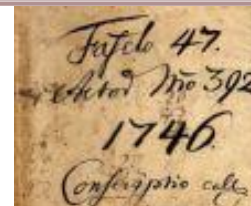 Fasclo 47.
Actor Nro 392
1746.
Conscriptio